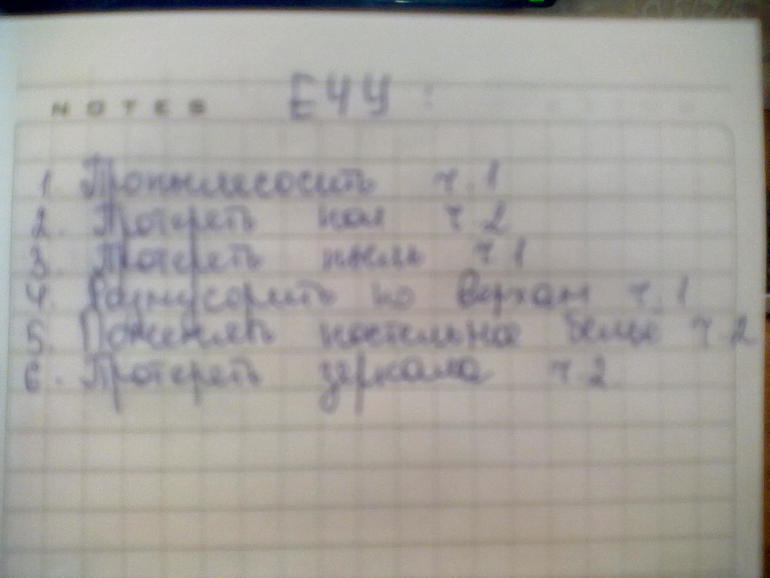 NOTES ЕЧУ:
1. Пропылесосить ч.1
2. Протереть пол ч.2
3. Протереть пыль ч.1
4. Размусорить по верхам ч.1
5. Поменять постельное белье ч.2
6. Протереть зеркала ч.2